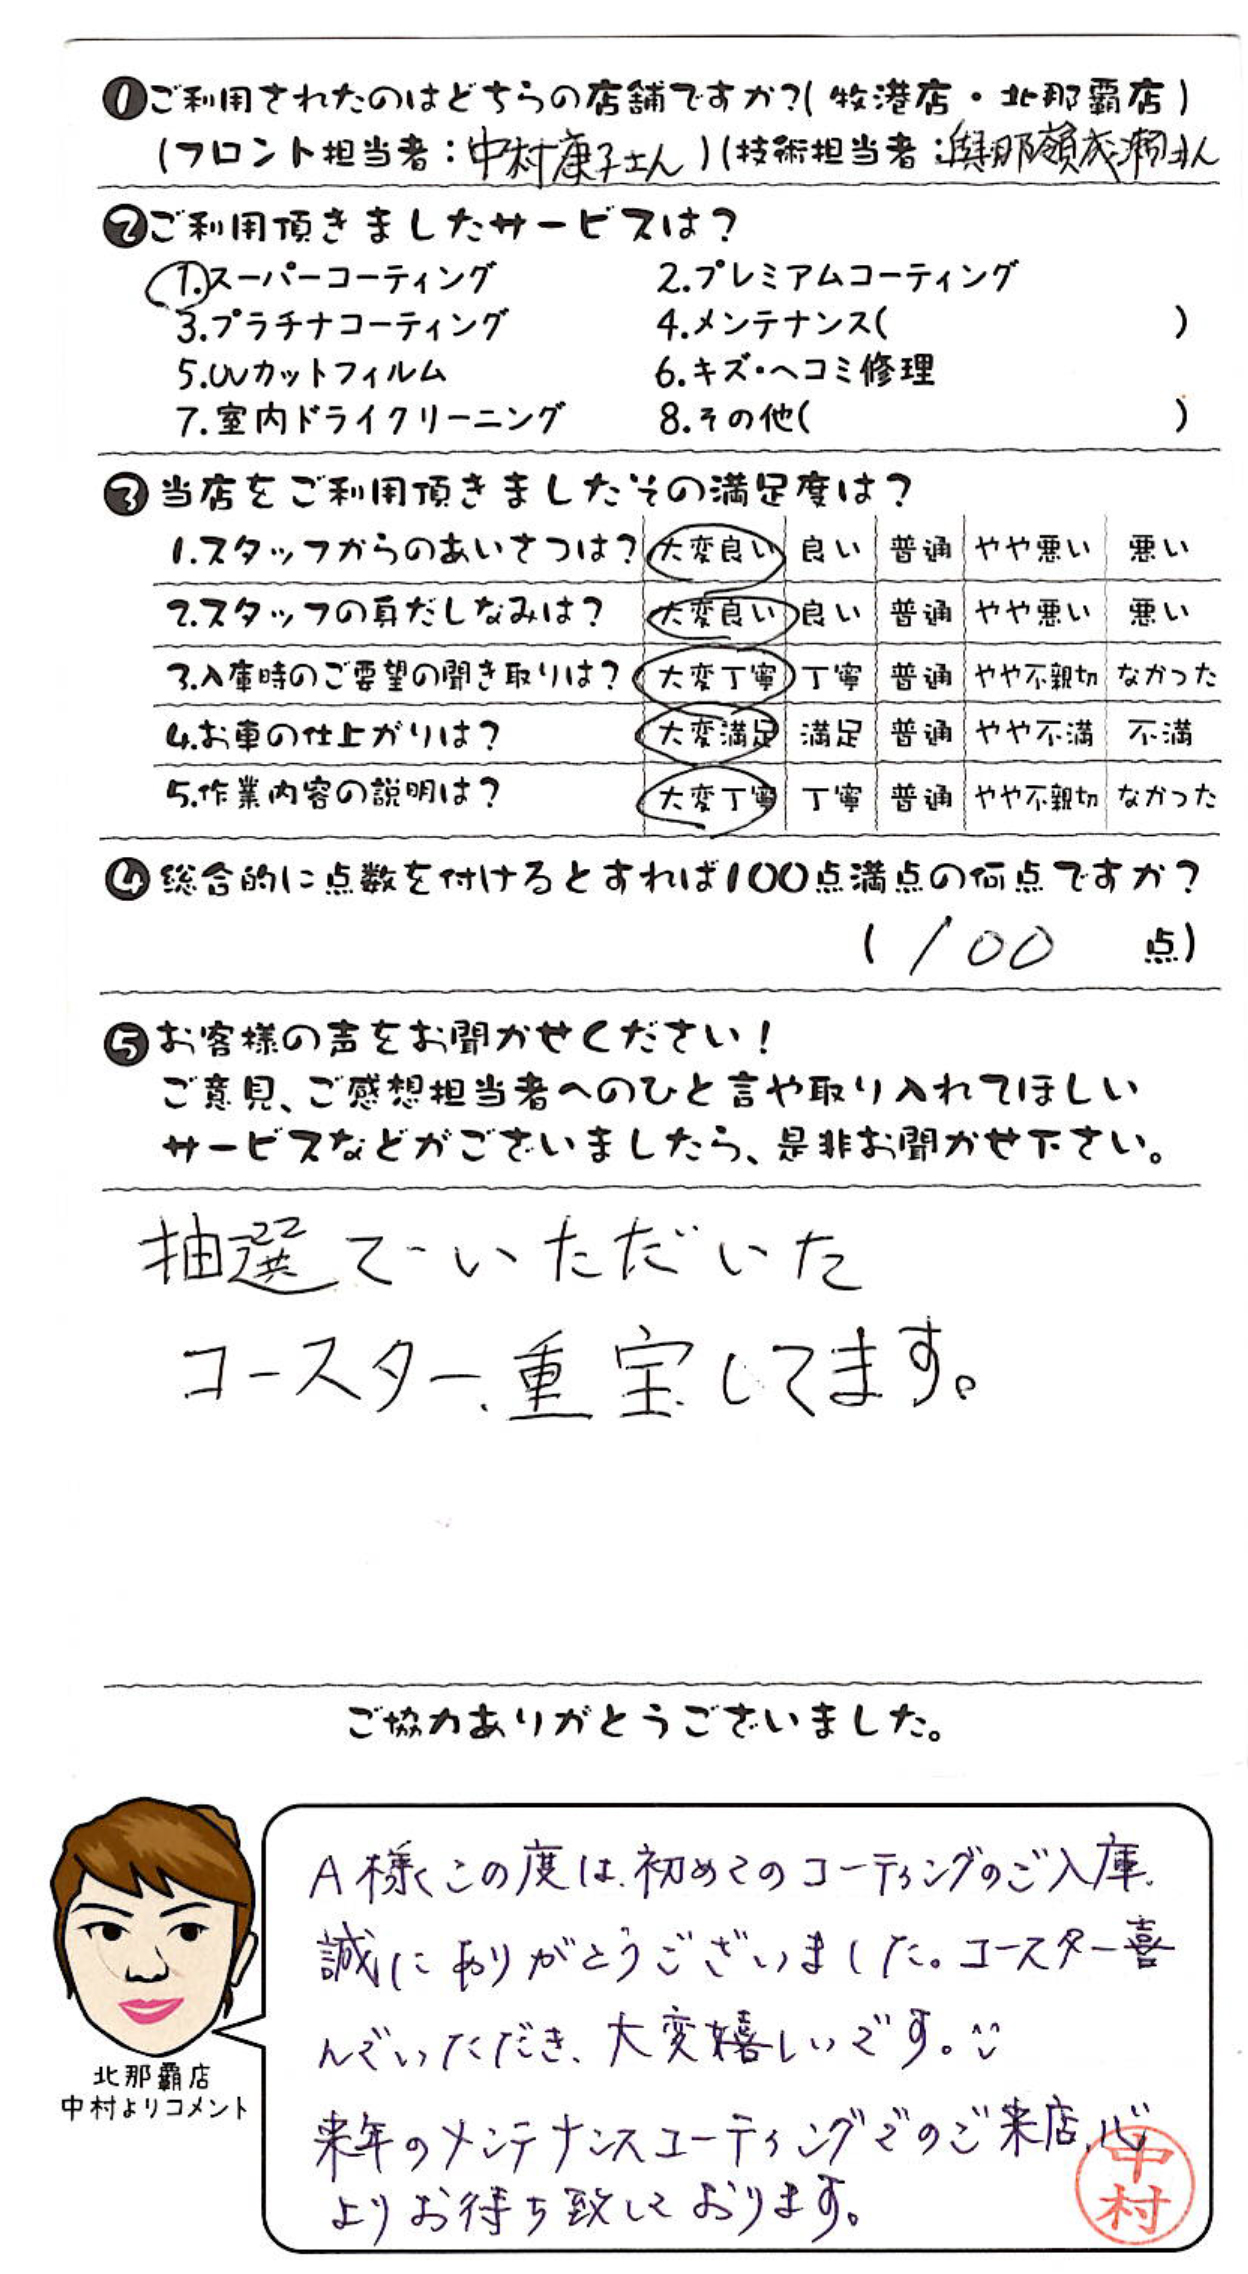 ❶ご利用されたのはどちらの店舗ですか?(牧港店・北那覇店)
(フロント担当者:中村康子さん)(技術担当者:與那嶺さん
❷ご利用頂きましたサービスは?
1.スーパーコーティング 2.プレミアムコーティング
3.プラチナコーティング 4.メンテナンス( )
5.UVカットフィルム 6.キズ・ヘコミ修理
7.室内ドライクリーニング 8.その他( )
❸当店をご利用頂きましたその満足度は?
1.スタッフからのあいさつは? 大変良い 良い 普通 やや悪い 悪い
2.スタッフの身だしなみは? 大変良い 良い 普通 やや悪い 悪い
3.入庫時のご要望の聞き取りは? 大変丁寧 丁寧 普通 やや不親切 なかった
4.お車の仕上がりは? 大変満足 満足 普通 やや不満 不満
5.作業内容の説明は? 大変丁寧 丁寧 普通 やや不親切 なかった
❹総合的に点数を付けるとすれば100点満点の何点ですか?
(100 点)
❺お客様の声をお聞かせください!
ご意見、ご感想担当者へのひと言や取り入れてほしい
サービスなどがございましたら、是非お聞かせ下さい。
抽選でいただいた
コースター、重宝してます。
ご協力ありがとうございました。
A様、この度は、初めてのコーティングのご入庫、
誠にありがとうございました。コースター喜
んでいただき、大変嬉しいです。
来年のメンテナンスコーティングでのご来店、心
よりお待ち致しております。
中村
北那覇店
中村よりコメント